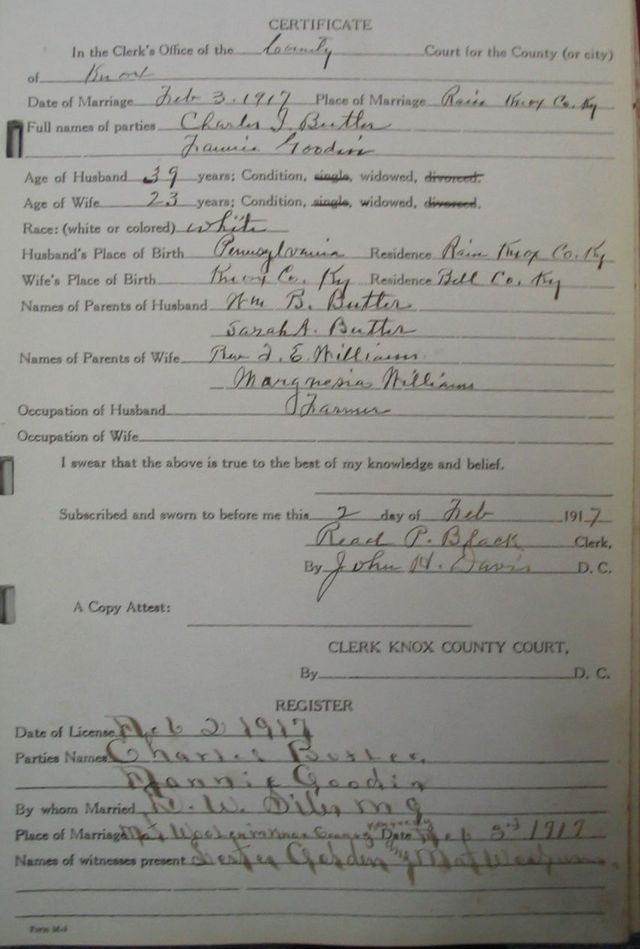 CERTIFICATE
In the Clerk's Office of the County Court for the County (or city)
of Knox
Date of Marriage Feb 3. 1917 Place of Marriage Rain Knox Co. Ky
Full names of parties Charles J. Butler
Fannie Goodin
Age of Husband 39 years; Condition, single, widowed, divorced.
Age of Wife 23 years; Condition, single, widowed, divorced.
Race: (white or colored) white
Husband's Place of Birth Pennsylvania Residence Rain Knox Co. Ky
Wife's Place of Birth Knox Co. Ky Residence Bell Co. Ky
Names of Parents of Husband Wm B. Butler
Sarah A. Butler
Names of Parents of Wife Rev. J. E. Williams
Williams
Occupation of Husband Farmer
Occupation of Wife
I swear that the above is true to the best of my knowledge and belief.
Subscribed and sworn to before me this 2 day of Feb 1917
Read P. Black Clerk,
By John H. Davis D. C.
A Copy Attest:
CLERK KNOX COUNTY COURT,
By D. C.
REGISTER
Date of License Feb 2 1917
Parties Names Charles Butler,
Goodin
By whom Married W. Siler M G
Place of Marriage Date Feb 3rd 1917
Names of witnesses present Lester